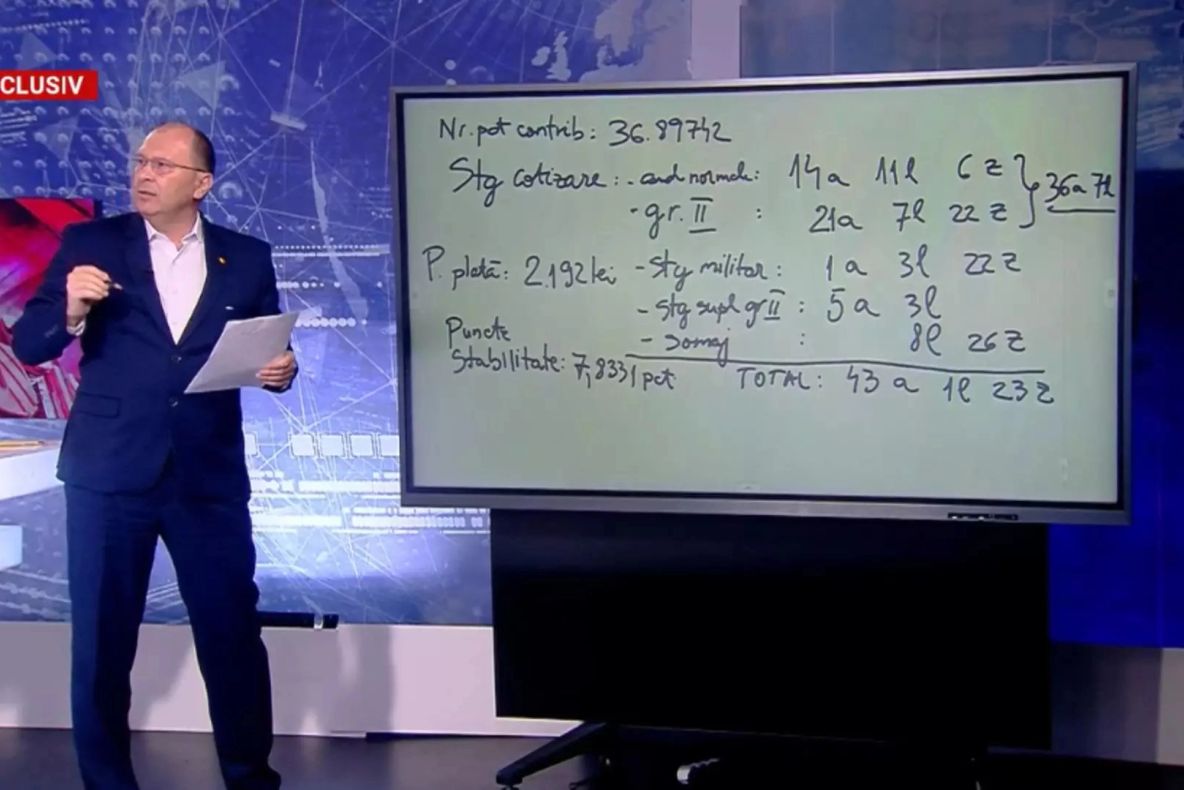 CLUSIV
Nr. pct contrib: 36.89742
Stg cotizare: - cond normale: 14a 11l 6z } 36a 7l
- gr. II : 21a 7l 22z
P. plată: 2.192 lei - Stg militar: 1a 3l 22z
- stg supl gr II : 5a 3l
Puncte - somaj : 8l 26z
Stabilitate: 7,8331 pct TOTAL: 43 a 1l 23z